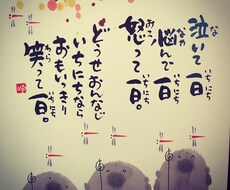 泣いて一日
悩んで一日
怒って一日。
どうせおんなじ
いちにちなら
おもいっきり
笑って一日。